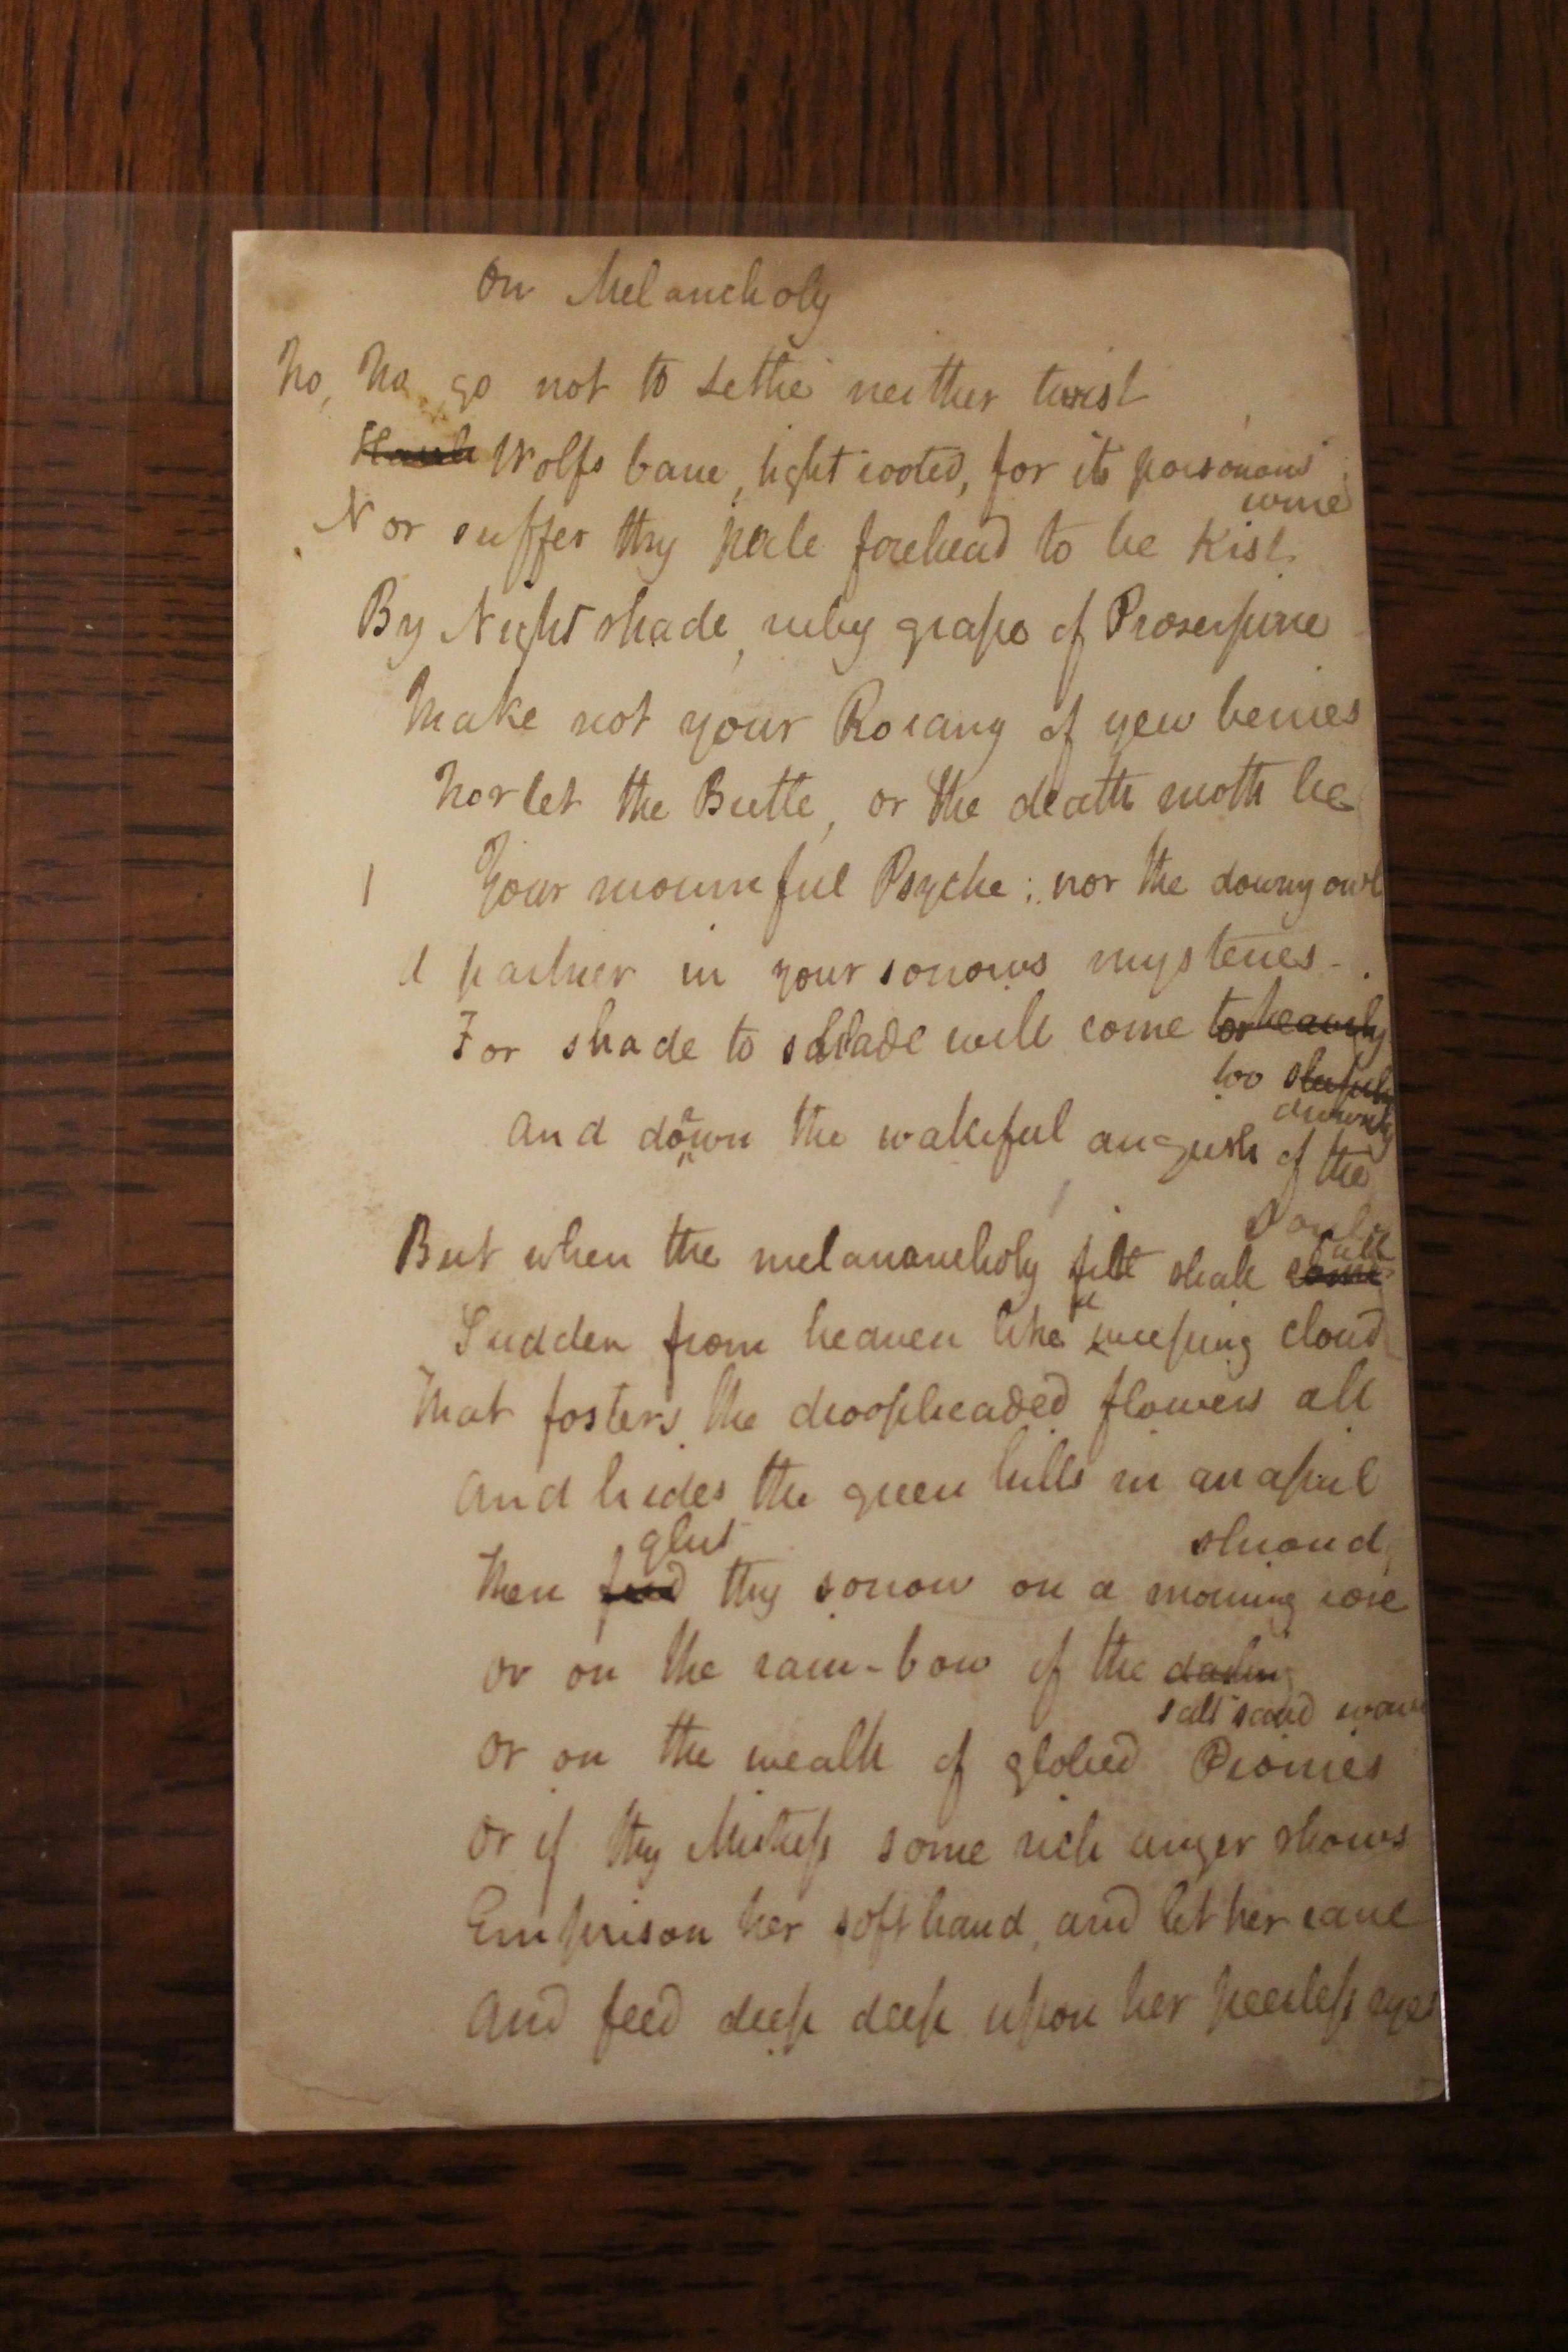 On Melancholy
No, No go not to Lethe neither twist
Hawk Wolfs bane, tight rooted, for its poisonous
wine
Nor suffer thy pale forehead to be kist
By Night shade, ruby grape of Proserpine
Make not your Rosary of yew berries
Nor let the Beetle, or the death moth be
Your mournful Psyche; nor the downy owl
A partner in your sorrows mysteries
For shade to shade will come too heavily
too sleepily
drowsily
And drown the wakeful anguish of the
soul
But when the melanancholy fit shall come
fall
Sudden from heaven like a weeping cloud
That fosters the droopheaded flowers all
And hides the green hills in an april
shroud,
glut
Then feed thy sorrow on a morning rose
Or on the rain-bow of the dashing
salt sand wave
Or on the wealth of globed Pionies
Or if thy Mistress some rich anger shows
Emprison her soft hand, and let her rave
And feed deep deep upon her peerless eyes